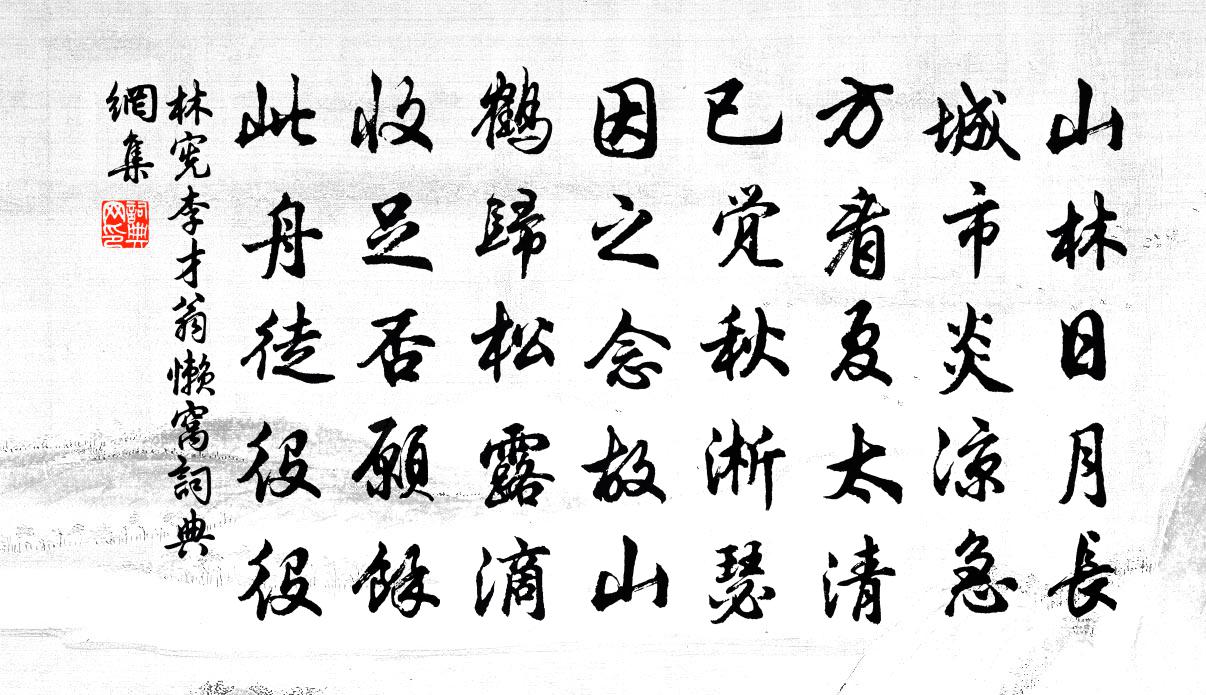 山林日月長
城市炎涼急
方看夏太清
已覺秋淅瑟
因之念故山
鶴歸松露滴
收足否願餘
此舟徒役役
林宪李才翁懒窩詞典
網集
詞典網印